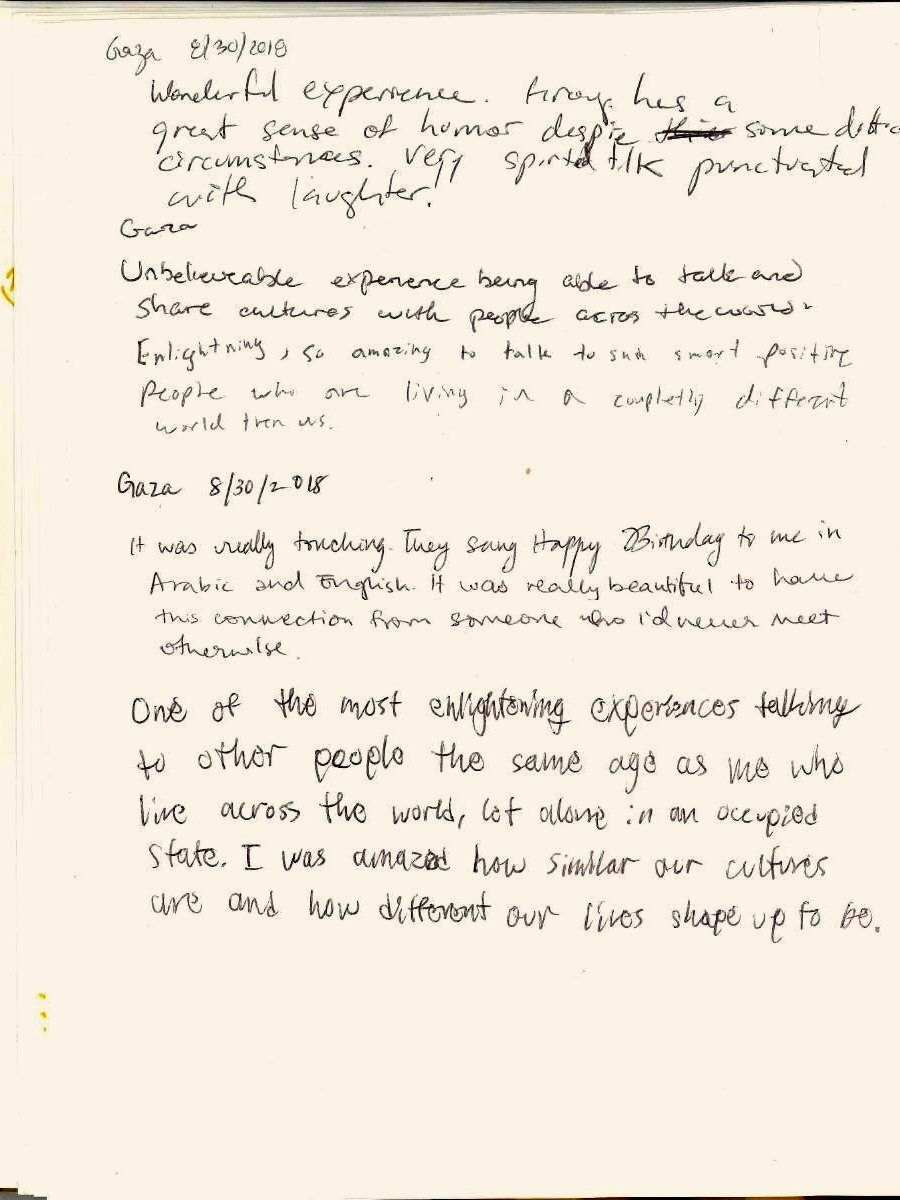 Gaza 8/30/2018
Wonderful experience. has a
great sense of humor despite some
circumstances. Very spirited talk punctuated
with laughter!
Gaza
Unbelieveable experience being able to talk and
share cultures with people across the world.
Enlightning, so amazing to talk to such smart positive
people who are living in a completly different
world then us.
Gaza 8/30/2018
It was really touching. They sang Happy Birthday to me in
Arabic and English. It was really beautiful to have
this connection from someone who I'd never meet
otherwise.
One of the most enlightening experiences talking
to other people the same age as me who
live across the world, let alone in an occupied
state. I was amazed how similar our cultures
are and how different our lives shape up to be.